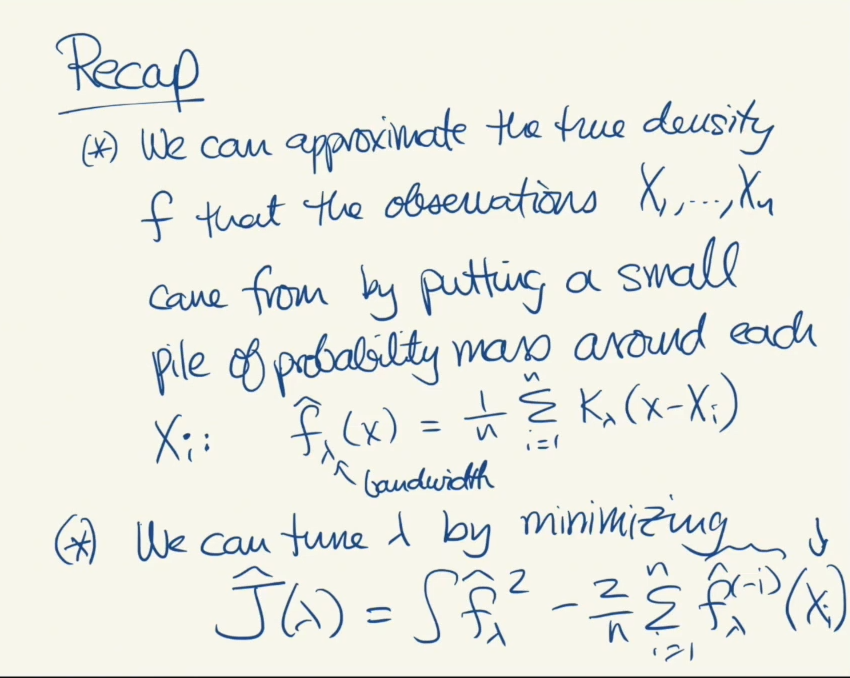 Recap
(*) We can approximate the true density
f that the observations X₁,...,Xₙ
came from by putting a small
pile of probability mass around each
Xᵢ: f̂_λ(x) = 1/n Σ_{i=1}^{n} K_λ(x-Xᵢ)
bandwidth
(*) We can tune λ by minimizing ↓
Ĵ(λ) = ∫ f̂_λ² - 2/n Σ_{i=1}^{n} f̂_λ^{(-i)}(Xᵢ)